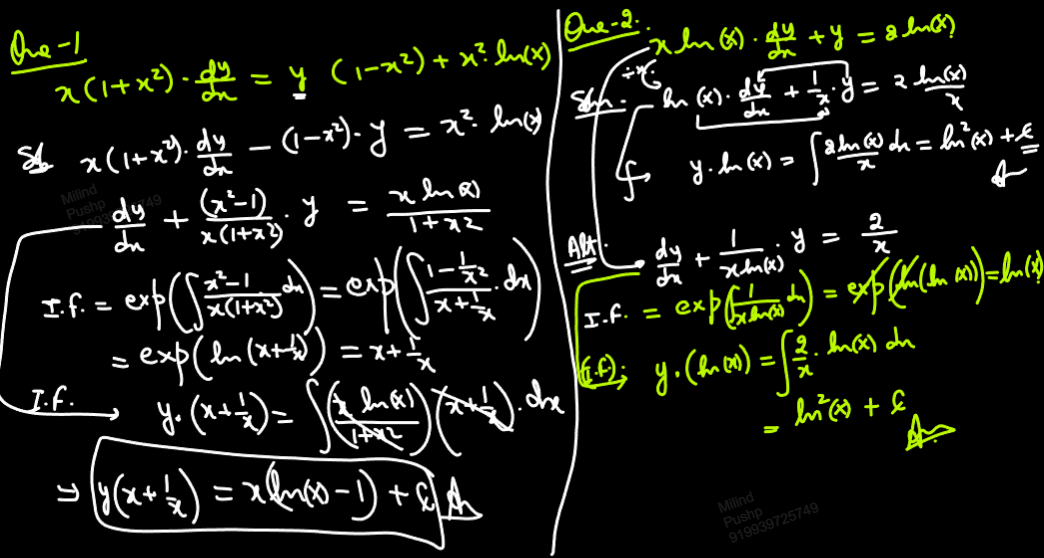 Que-1
x(1+x²)·dy/dx = y (1-x²) + x²·ln(x)
Sol x(1+x²)·dy/dx - (1-x²)·y = x²·ln(x)
dy/dx + (x²-1)/(x(1+x²))·y = x ln(x)/(1+x²)
I.f. = exp(∫(x²-1)/(x(1+x²)) dx) = exp(∫(1-1/x²)/(x+1/x)·dx)
= exp(ln(x+1/x)) = x+1/x
I.f. → y·(x+1/x) = ∫(x ln(x)/(1+x²))(x+1/x)·dx
⇒ y(x+1/x) = x(ln(x)-1) + c Ans
Que-2.
x ln(x)·dy/dx + y = 2 ln(x)
÷x
Soln. ln(x)·dy/dx + 1/x·y = 2 ln(x)/x
∫→ y·ln(x) = ∫2ln(x)/x dx = ln²(x) + c
Ans
Alt. dy/dx + 1/(x ln(x))·y = 2/x
I.f. = exp(∫1/(x ln(x)) dx) = exp(ln(ln(x))) = ln(x)
(I.f): y·(ln(x)) = ∫2/x·ln(x) dx
= ln²(x) + c
Ans
Milind
Pushp
919939725749
Milind
Pushp
919939725749